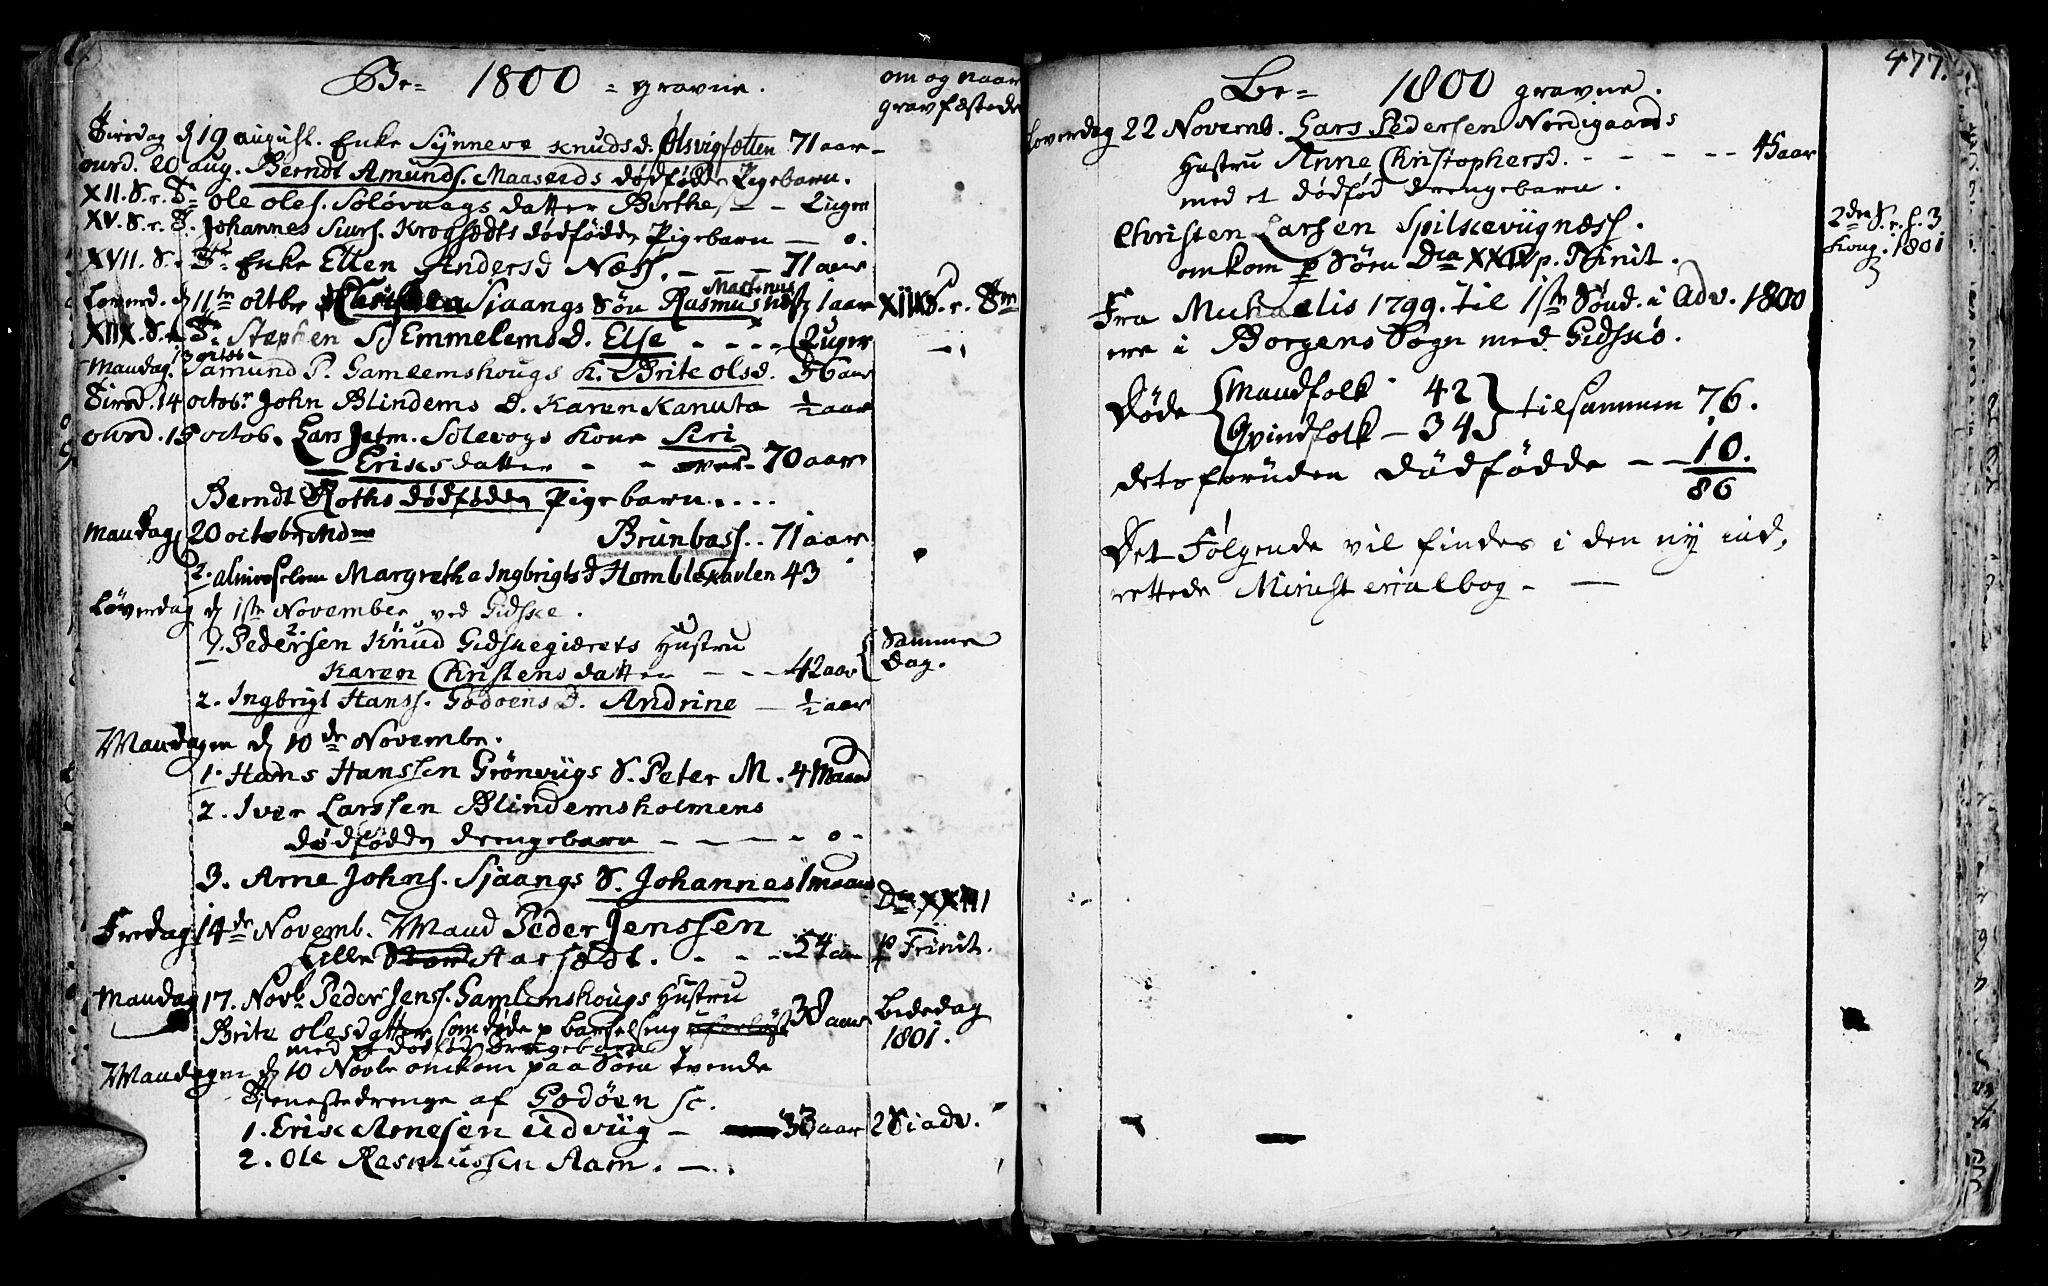 Be- 1800 - gravne.
om og naar
gravfæstede
Tirsdag d 19 august. Enke Synneve Knudsd. Ølsvigsætten 71 aar
20 aug. Berndt Amunds. Maaseids dødfødde Pigebarn.
XII. S. r. Tr. Ole Oles. Soløvaags datter Birthe - 2 uger
XV. S. r. T. Johannes Siurs. Krogsædts dødfødde Pigebarn - 0.
XVII. S. r. Tr. Enke Ellen Andersd Næss. - - - 71 aar
Løverd. d 11te octbr Sjaangs Søn Rasmus Martinus 1 aar
XIIX. S. r. Tr. Stephen Emmelems D. Else - - - 2 uger
Mandag 13 octob. Samund P. Gamlemshougs K. Brite olsd. 36 aar
Tirsd. 14 octobr John Blindems D. Karen Kanuta ½ aar
onsd. 15 octob. Lars Jetm. Solevogs Kone Siri
Eriksdatter - - over - 70 aar
Berndt Roths dødfødde Pigebarn....
Mandag 20 octobr Md Brunbass. . 71 aar
2. Margretha Ingbrigtsd Homble 43
Løverdag d 1ste November ved Gidske.
1. Pedersen Knud Gidskegierets Hustru
Karen Christensdatter - - - 42 aar
Samme
Dag.
2. Ingbrigt Hanss. Godøens D. Andrine - ½ aar
Mandagen d 10de Novembr.
1. Hans Hanssen Grönvügs S. Peter M. 4 Maan
2. Iver Larssen Blindemsholmens
dødfødde drengebarn - - - - 0 -
3. Arne Johns. Sjaangs S. Johannes 1 maan
Fredag 14de Novemb. Mand Peder Jenssen
Lille Aarsædt. - - - 54 aar
Da XXIII
p Trinit.
Mandag 17. Novb Peder Jens. Gamlemshougs Hustru
Brite olesdatter som døde p barselseng 38 aar
med dødfød drengebarn
Bededag
1801.
Mandagen d 10 Novbr omkom paa Søen tvende
Tjenestedrenge af Godøen sc.
1. Erik Arnesen Udvüg - 33 aar
2 S i adv.
2. Ole Rasmussen Aam. -
477.
Be- 1800 gravne.
Løverdag 22 Novemb. Lars Pedersen Nordigaards
Hustru Anne Christophersd. - - - - - 45 aar
med et dødfød drengebarn.
Christen Larsen Spilkeviignæss.
omkom p Søen Dca XXII p. Trinit.
2den S. r. h. 3
Kong. 1801
Fra Michaelis 1799. til 1ste Sönd. i Adv. 1800
ere i Borgens Sogn med Gidskø.
Døde Mandfolk - 42
Qvindfolk - 34
tilsammen 76.
detsforuden dødfødde - - 10.
86
Det Følgende vil findes i den ny ind,
rettede Ministerialbog. -